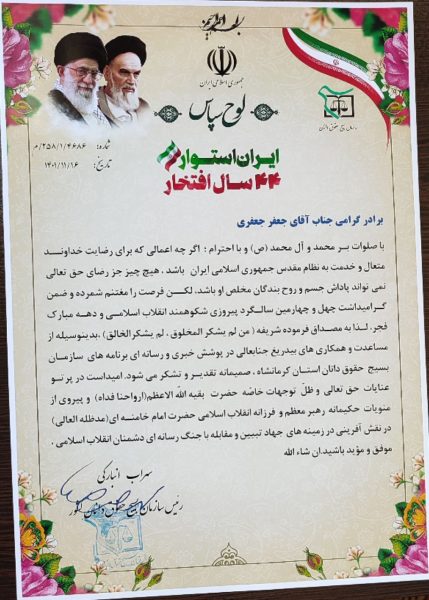 بسم الله الرحمن الرحیم
جمهوری اسلامی ایران
لوح سپاس
سازمان بسیج حقوقدانان
شماره: ۲۵۸/۱/۴۶۸۶/م
تاریخ: ۱۴۰۱/۱۱/۱۶
ایران استوار
۴۴ سال افتخار
برادر گرامی جناب آقای جعفر جعفری
با صلوات بر محمد و آل محمد (ص) و با احترام ؛ اگر چه اعمالی که برای رضایت خداوند
متعال و خدمت به نظام مقدس جمهوری اسلامی ایران باشد ، هیچ چیز جز رضای حق تعالی
نمی تواند پاداش جسم و روح بندگان مخلص او باشد. لکن فرصت را مغتنم شمرده و ضمن
گرامیداشت چهل و چهارمین سالگرد پیروزی شکوهمند انقلاب اسلامی و دهه مبارک
فجر، لذا به مصداق فرموده شریفه ( من لم یشکر المخلوق ، لم یشکر الخالق) ،بدینوسیله از
مساعدت و همکاری های بیدریغ جنابعالی در پوشش خبری و رسانه ای برنامه های سازمان
بسیج حقوق دانان استان کرمانشاه ، صمیمانه تقدیر و تشکر می شود. امیداست در پر تو
عنایات حق تعالی و ظلّ توجهات خاصّه حضرت بقیه الله الاعظم(ارواحنا فداه) و پیروی از
منویات حکیمانه رهبر معظم و فرزانه انقلاب اسلامی حضرت امام خامنه ای(مدظله العالی)
در نقش آفرینی در زمینه های جهاد تبیین و مقابله با جنگ رسانه ای دشمنان انقلاب اسلامی ،
موفق و مؤید باشید.ان شاء الله
سهراب انبارکی
رئیس سازمان بسیج حقوقدانان کشور